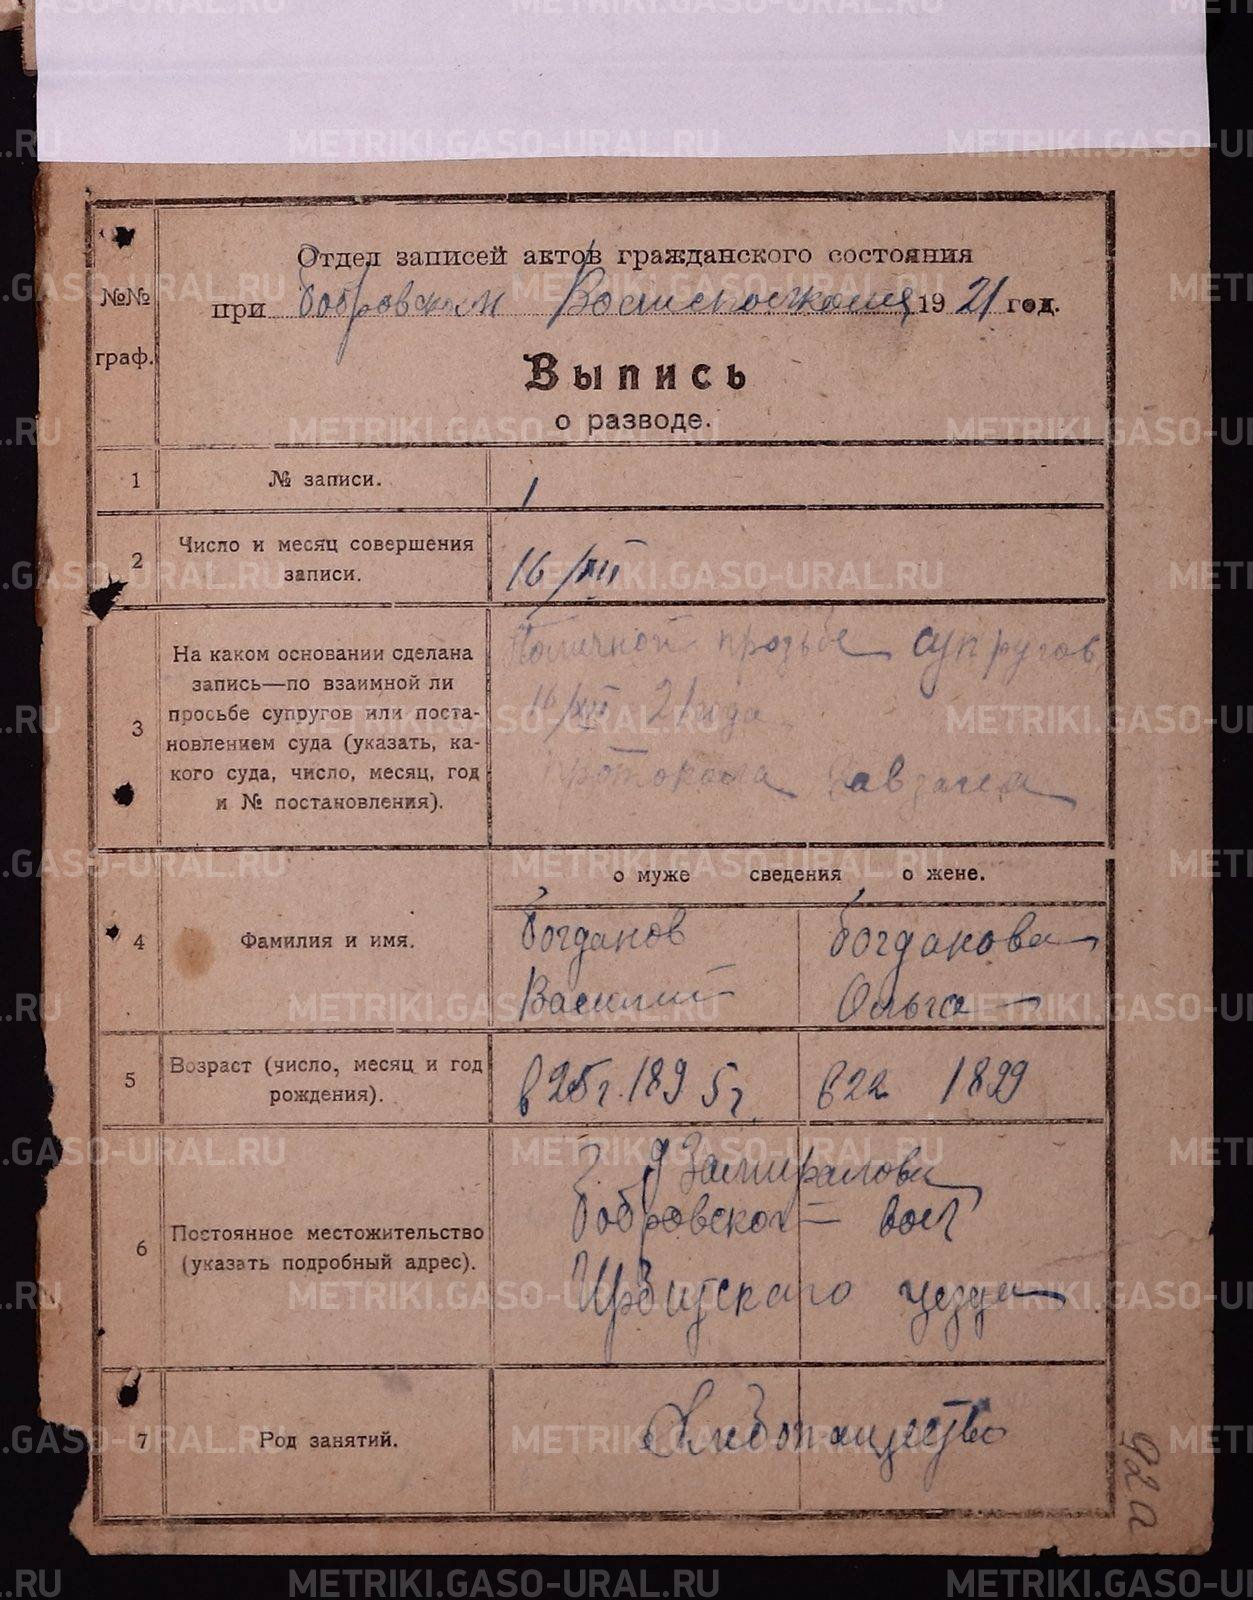 Отдел записей актов гражданского состояния
№№ при Бобровском Волисполкоме 1921 год.
граф.
Выпись
о разводе.
1 № записи. 1
2 Число и месяц совершения записи. 16/XII
3 На каком основании сделана
запись—по взаимной ли
просьбе супругов или поста-
новлением суда (указать, ка-
кого суда, число, месяц, год
и № постановления).
прозьбе супругов
16/XII 21 года
протокола Завзагса
о муже сведения о жене.
4 Фамилия и имя.
Богданов Богданова
Василий Ольга
5 Возраст (число, месяц и год
рождения).
в 25 г. 1895 г. в 22 1899
6 Постоянное местожительство
(указать подробный адрес).
д Замиралова
Бобровской вол
Ирбитского уезда
7 Род занятий. Хлебопашество
92а
METRIKI.GASO-URAL.RU